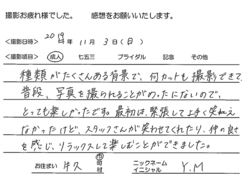 撮影お疲れ様でした。 感想をお願いいたします。
<撮影日時> 2019年 11月 3日(日)
<撮影項目> 成人 七五三 ブライダル 記念 その他
種類がたくさんある背景で、何カットも撮影できて
普段、写真を撮られることがめったにないので、
とっても楽しかったです。最初は、緊張して上手く笑えて
なかったけど、スタッフさんが笑わせてくれたり、仲の良さ
を感じ、リラックスして楽しむことができました。
お住まい 牛久 市 ニックネーム イニシャル Y.M